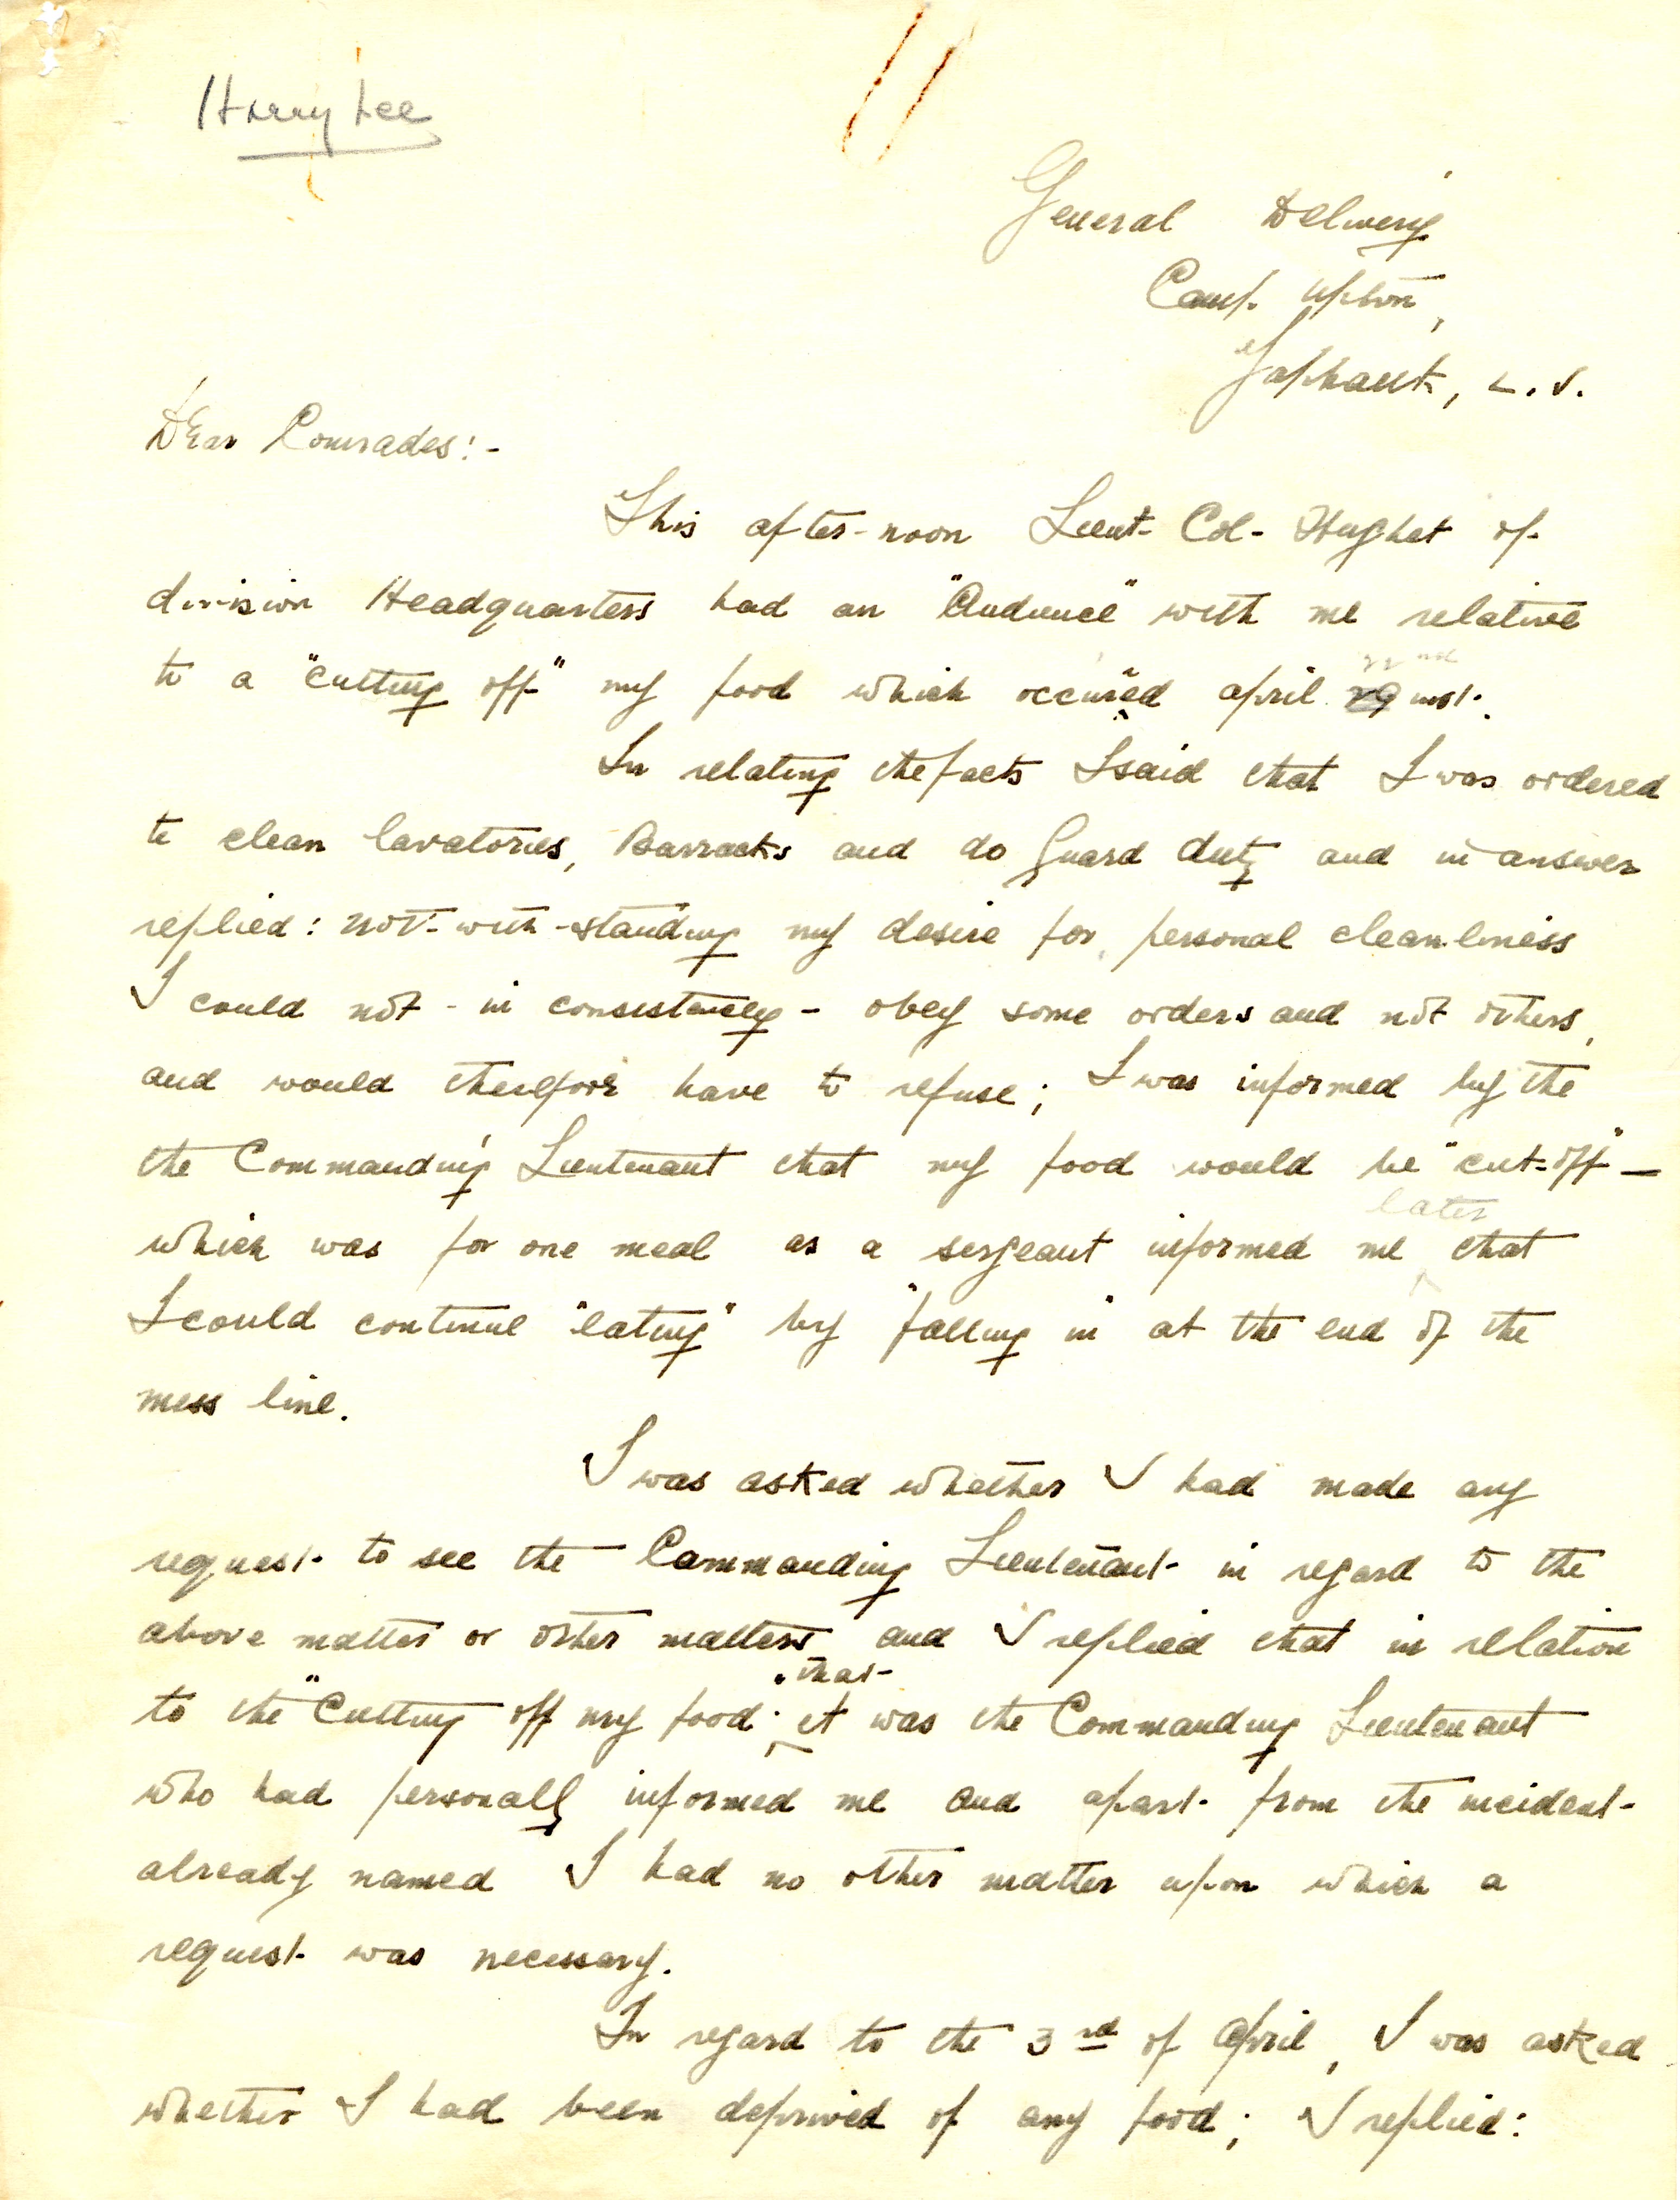 Harry Lee
General Delivery
Camp Upton,
Yaphank, L.I.
Dear Comrades:-
This after-noon Lieut- Col- Hughet of
division Headquarters had an "Audience" with me relative
to a "cutting off" my food which occured april 22nd inst.
In relating the facts I said that I was ordered
to clean lavatories, Barracks and do guard duty and in answer
replied: not-with-standing my desire for personal cleanliness
I could not - in consistency - obey some orders and not others,
and would therefore have to refuse; I was informed by the
the Commanding Lieutenant that my food would be "cut-off" —
which was for one meal as a sergeant informed me later that
I could continue "eating" by "falling in" at the end of the
mess line.
I was asked whether I had made any
request to see the Commanding Lieutenant in regard to the
above matter or other matters and I replied that in relation
to the "Cutting off my food" that it was the Commanding Lieutenant
who had personally informed me and apart from the incident
already named I had no other matter upon which a
request was necessary.
In regard to the 3rd of April, I was asked
whether I had been deprived of any food; I replied: